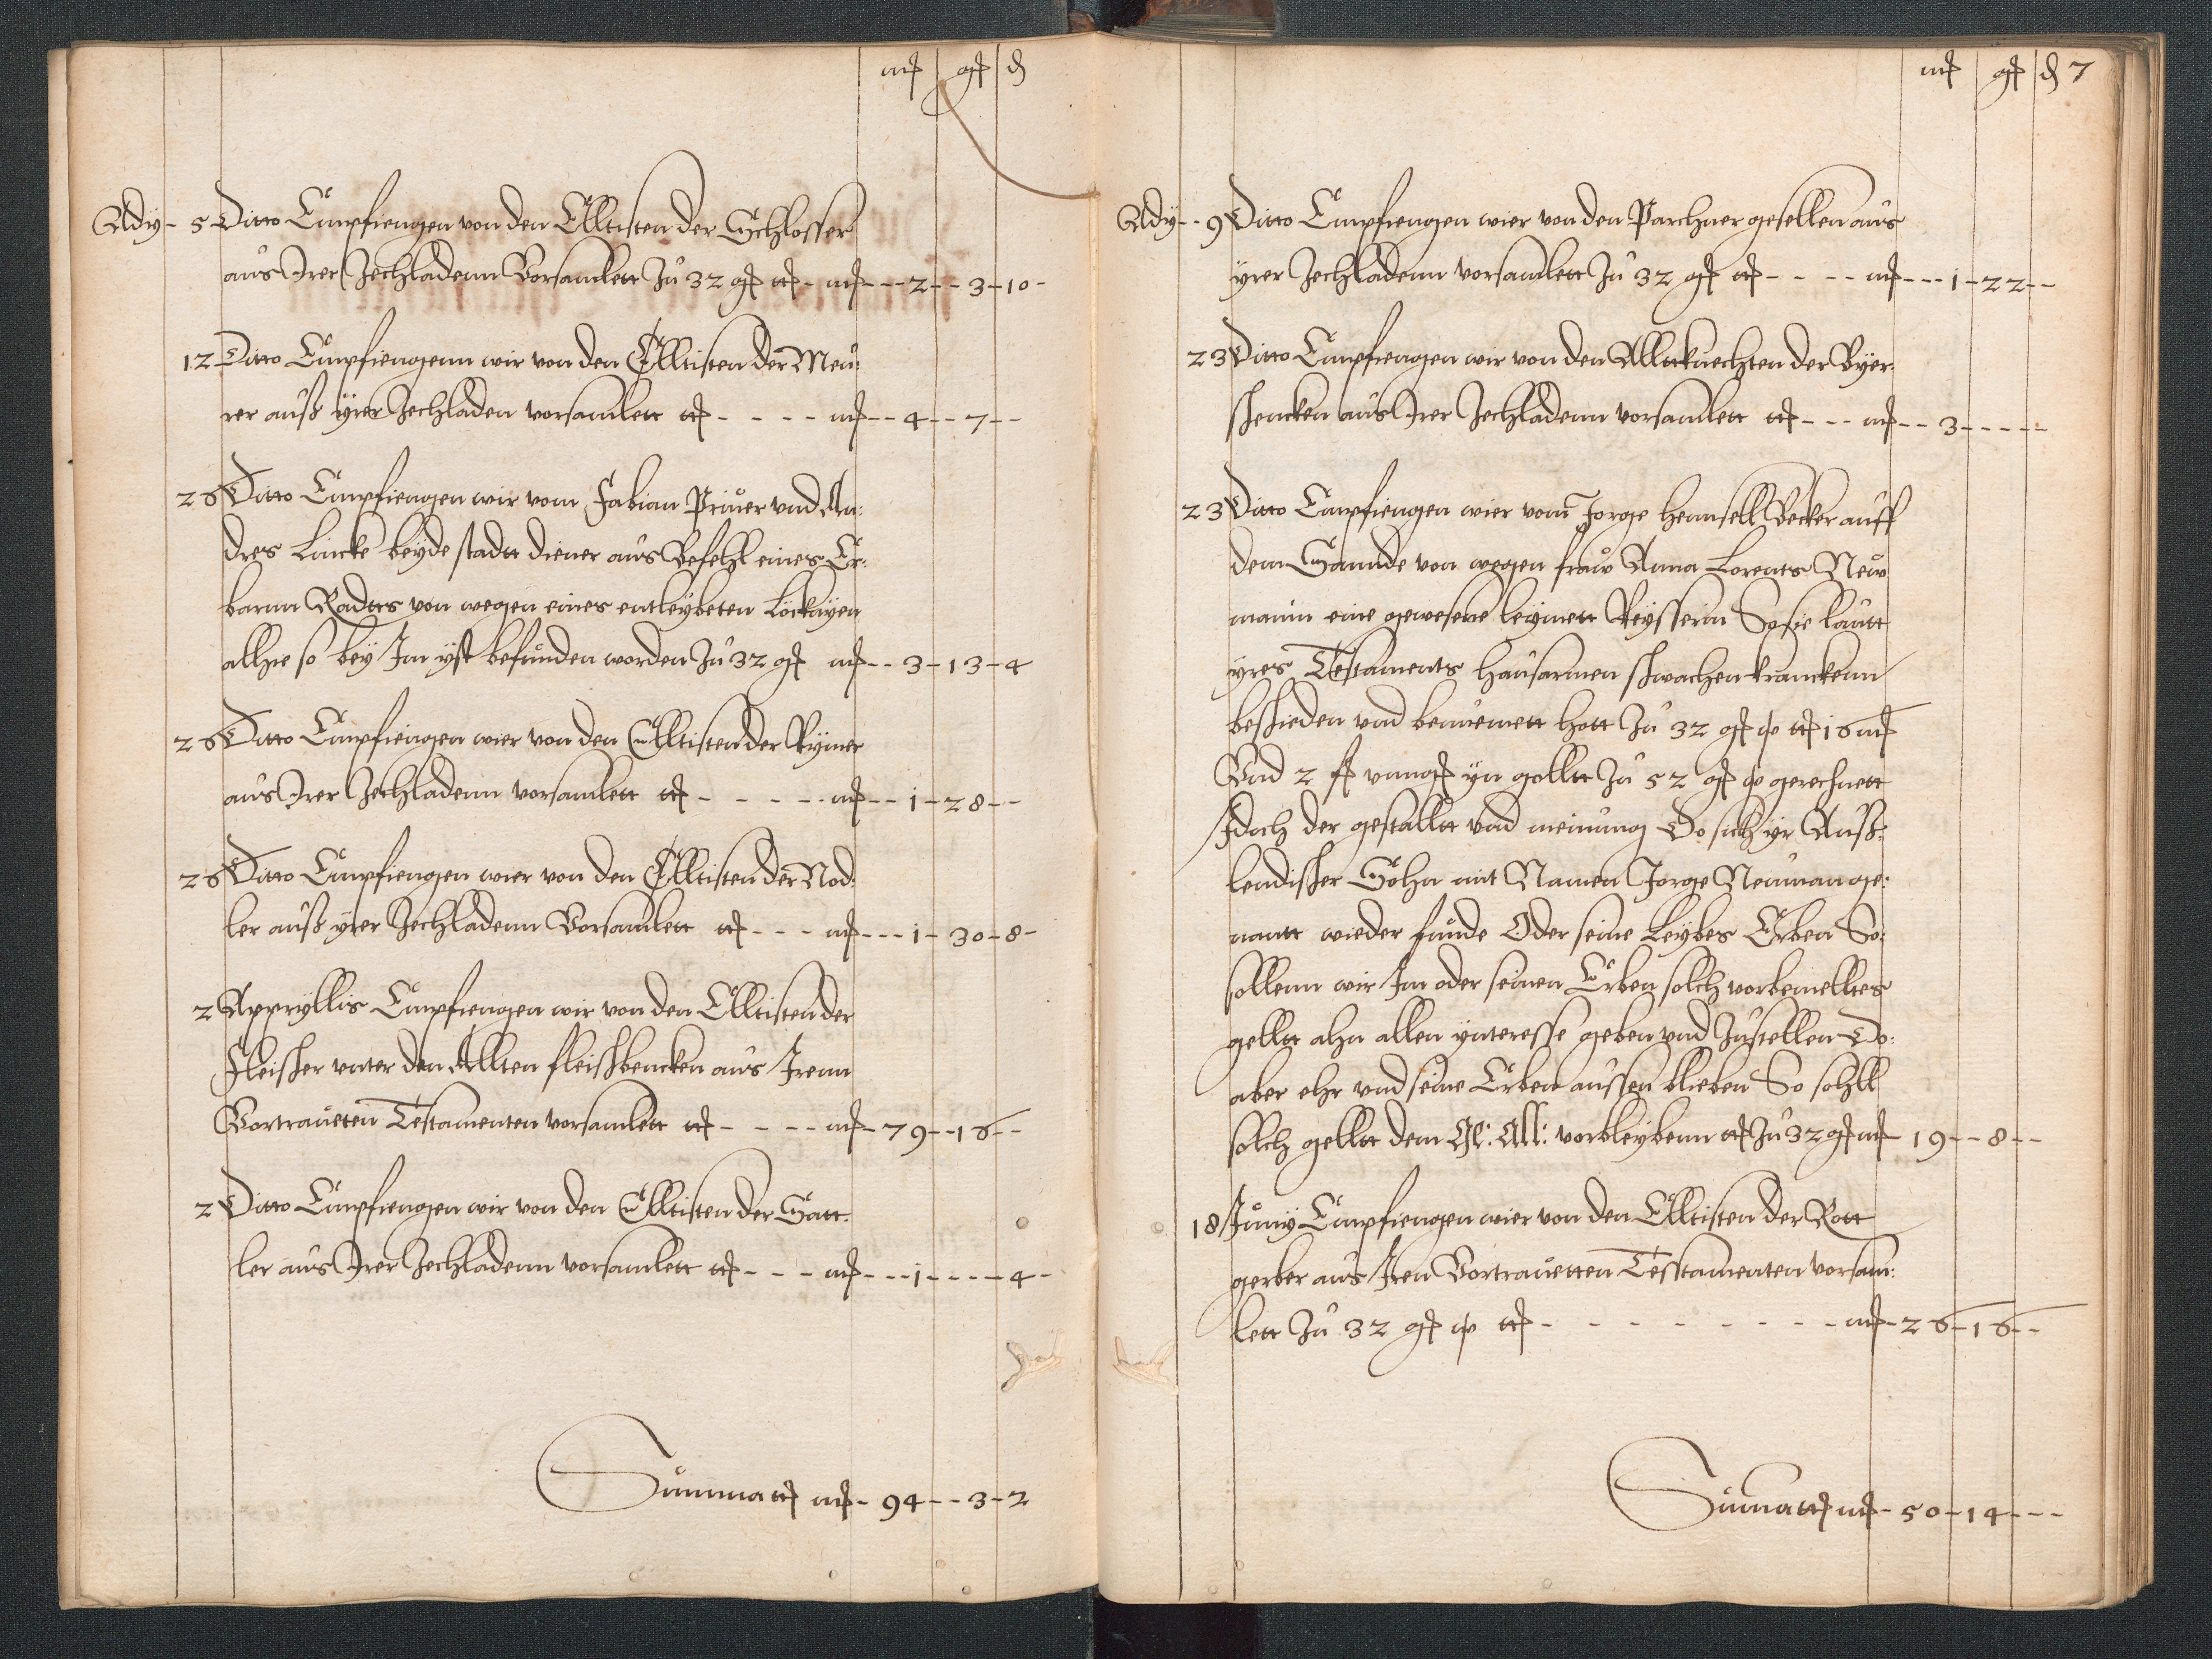 mſ gſ ₰
Ady - 5 Ditto Empfiengen von den Elltisten der Schlosser
aus Irer Zechladenn Vorsamlett Zu 32 gſ ttſ - mſ --- 2 -- 3 - 10 -
12 Ditto Empfiengenn wir von den Elltisten der Meu:
rer auß yrer Zechladen vorsamlett ttſ - - - - mſ -- 4 -- 7 --
26 Ditto Empfiengen wir vom Fabian Priuer vnd An:
dres Lincke beyde stadtt diener aus Befehl eines Er:
barnn Radtts von wegen eines entleybeten
allhie so bey Im yst befunden worden Zu 32 gſ mſ -- 3 - 13 - 4
26 Ditto Empfiengen wier von den Elltisten der Rymer
aus Irer Zechladenn vorsamlett ttſ - - - - - mſ -- 1 - 28 --
26 Ditto Empfiengen wier von den Elltisten der Nod:
ler auß yrer Zechladenn Vorsamlett ttſ - - - mſ --- 1 - 30 - 8 -
2 Appryllis Empfiengen wir von den Elltisten der
Fleischer vnter den Allten fleischbencken aus Irenn
Vortraueten Testamenten vorsamlett ttſ - - - - mſ - 79 -- 16 --
2 Ditto Empfiengen wir von den Elltisten der Satt:
ler aus Irer Zechladenn vorsamlett ttſ - - - mſ --- 1 ----- 4 -
Summa ttſ mſ - 94 --- 3 - 2
mſ gſ ₰ 7
Ady -- 9 Ditto Empfiengen wier von den Parchner gesellen aus
yrer Zechladenn vorsamlett Zu 32 gſ ttſ - - - - mſ --- 1 - 22 --
23 Ditto Empfiengen wir von den Alltknechten der Byer:
schencken aus Irer Zechladenn vorsamlett ttſ - - - mſ -- 3 -----
23 Ditto Empfiengen wier vom Jorge Hennsell Becker auff
dem Sannde von wegen fraw Anna Lorents New
manin eine gewesene leynett Reysserin So sie lautt
yres Testaments hausarmen schwachen kranckenn
beschieden vnd benuemett hott Zu 32 gſ ꝓ ttſ 16 mſ
Vnd 2 fſ vnngſ yn golltt Zu 52 gſ ꝓ gerechnett
Idoch der gestalltt vnd meinung Do sich yr Auß:
lendischer Sohn mit Namen Jorge Neuman ge:
nantt wieder funde Oder seine Leybes Erben So:
sollenn wir Im oder seinen Erben solch vorbemelltes
gelltt ahn allen ynteresse geben vnd Zustellen Do:
aber ehr vnd seine Erben aussen blieben So sohll
solch gelltt dem Gl: All: vorbleybenn ttſ Zu 32 gſ mſ - 19 -- 8 --
18 Juny Empfiengen wier von den Elltisten der Rott
gerber aus Iren Vortrauetten Testamenten vorsam:
lett Zu 32 gſ ꝓ ttſ - - - - - - - - mſ - 26 - 16 --
Summa ttſ mſ - 50 - 14 ---